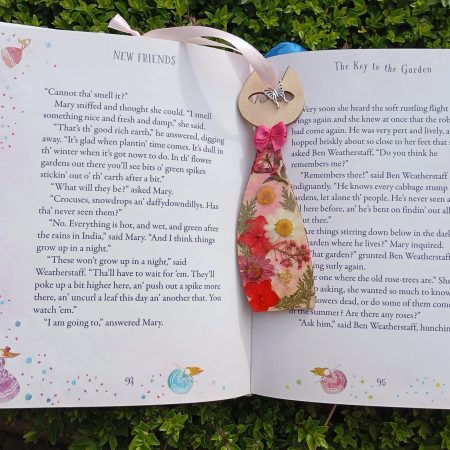 NEW FRIENDS
"Cannot tha' smell it?"
Mary sniffed and thought she could. "I smell
something nice and fresh and damp," she said.
"That's th' good rich earth," he answered, digging
away. "It's glad when plantin' time comes. It's dull in
th' winter when it's got nowt to do. In th' flower
gardens out there you'll see bits o' green spikes
stickin' out o' th' earth after a bit."
"What will they be?" asked Mary.
"Crocuses, snowdrops an' daffydowndillys. Has
tha' never seen them?"
"No. Everything is hot, and wet, and green after
the rains in India," said Mary. "And I think things
grow up in a night."
"These won't grow up in a night," said
Weatherstaff. "Tha'll have to wait for 'em. They'll
poke up a bit higher here, an' push out a spike more
there, an' uncurl a leaf this day an' another that. You
watch 'em."
"I am going to," answered Mary.
94
The Key to the Garden
Very soon she heard the soft rustling flight
wings again and she knew at once that the rob
had come again. He was very pert and lively, a
hopped briskly about so close to her feet that s
asked Ben Weatherstaff, "Do you think he
remembers me?"
"Remembers thee!" said Ben Weatherstaff
indignantly. "He knows every cabbage stump
gardens, let alone th' people. He's never seen a
here before, an' he's bent on findin' out all
ut thee."
Are things stirring down below in the dark
garden where he lives?" Mary inquired.
What garden?" grunted Ben Weatherstaff,
ing surly again.
e one where the old rose-trees are." She
asking, she wanted so much to know.
flowers dead, or do some of them come
the summer? Are there any roses?"
"Ask him," said Ben Weatherstaff, hunchin
95